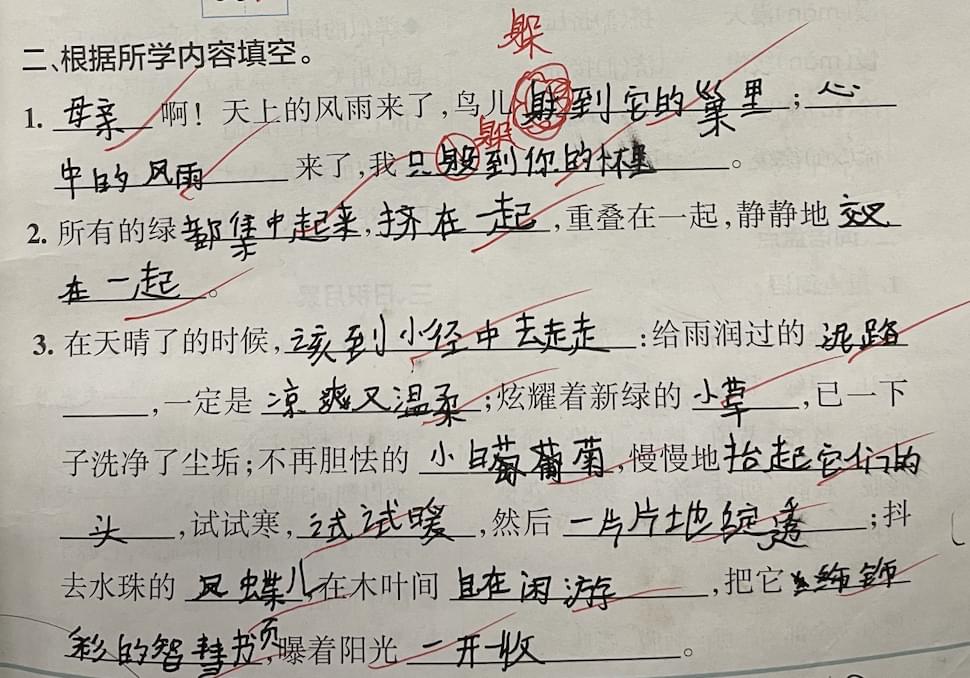 躲
二、根据所学内容填空。
1. 母亲 啊！天上的风雨来了，鸟儿躲到它的巢里；心
躲
中的风雨 来了，我只躲到你的怀里。
2. 所有的绿都集中起来，挤在一起，重叠在一起，静静地交叉
在一起。
3. 在天晴了的时候，该到小径中去走走：给雨润过的泥路
，一定是凉爽又温柔；炫耀着新绿的小草，已一下
子洗净了尘垢；不再胆怯的小白菊，慢慢地抬起它们的
头，试试寒，试试暖，然后一片片地绽透；抖
去水珠的凤蝶儿在木叶间自在闲游，把它的饰
彩的智慧书页，曝着阳光一开一收。